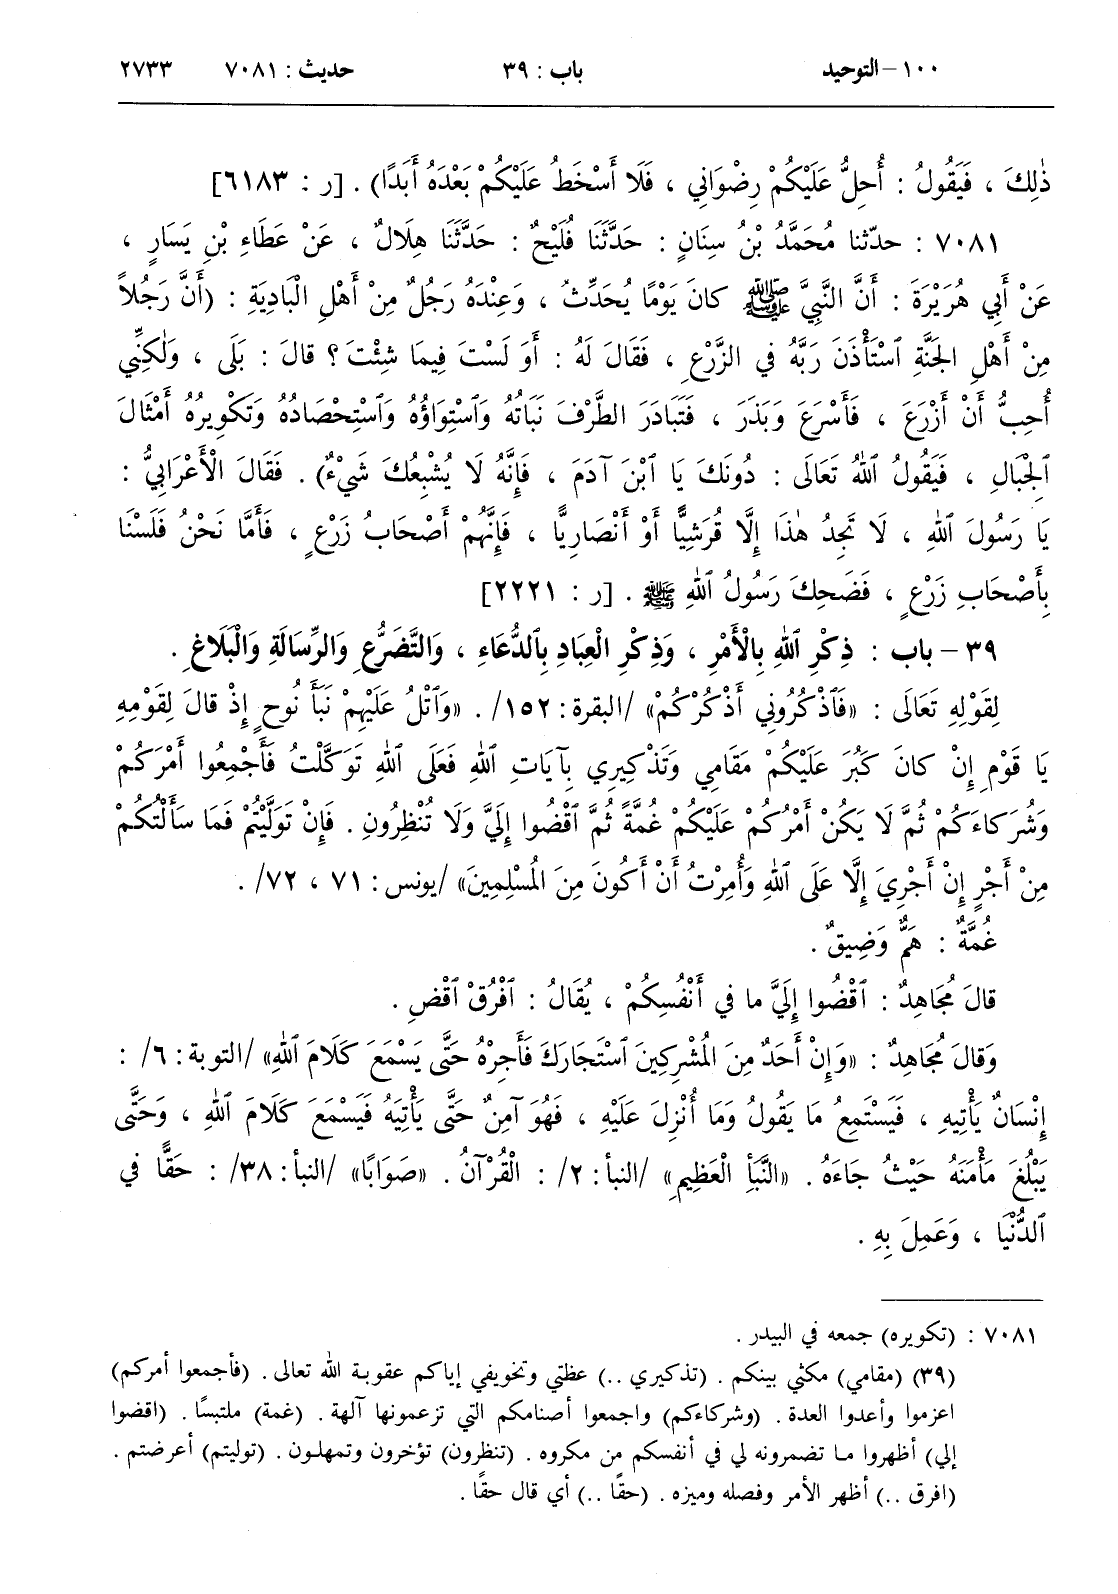 ١٠٠ – التوحيد باب : ٣٩ حديث : ٧٠٨١ ٢٧٣٣
ذٰلِكَ ، فَيَقُولُ : أُحِلُّ عَلَيْكُمْ رِضْوَانِي ، فَلَا أَسْخَطُ عَلَيْكُمْ بَعْدَهُ أَبَدًا) . [ر : ٦١٨٣]
٧٠٨١ : حدّثنا مُحَمَّدُ بْنُ سِنَانٍ : حَدَّثَنَا فُلَيْحٌ : حَدَّثَنَا هِلَالٌ ، عَنْ عَطَاءِ بْنِ يَسَارٍ ،
عَنْ أَبِي هُرَيْرَةَ : أَنَّ النَّبِيَّ ﷺ كانَ يَوْمًا يُحَدِّثُ ، وَعِنْدَهُ رَجُلٌ مِنْ أَهْلِ الْبَادِيَةِ : (أَنَّ رَجُلاً
مِنْ أَهْلِ الجَنَّةِ ٱسْتَأْذَنَ رَبَّهُ في الزَّرْعِ ، فَقَالَ لَهُ : أَوَ لَسْتَ فِيمَا شِئْتَ ؟ قالَ : بَلَى ، وَلٰكِنِّي
أُحِبُّ أَنْ أَزْرَعَ ، فَأَسْرَعَ وَبَذَرَ ، فَتَبَادَرَ الطَّرْفَ نَبَاتُهُ وَٱسْتِوَاؤُهُ وَٱسْتِحْصَادُهُ وَتَكْوِيرُهُ أَمْثَالَ
ٱلْجِبَالِ ، فَيَقُولُ ٱللهُ تَعَالَى : دُونَكَ يَا ٱبْنَ آدَمَ ، فَإِنَّهُ لَا يُشْبِعُكَ شَيْءٌ) . فَقَالَ الْأَعْرَابِيُّ :
يَا رَسُولَ ٱللهِ ، لَا تَجِدُ هٰذَا إِلَّا قُرَشِيًّا أَوْ أَنْصَارِيًّا ، فَإِنَّهُمْ أَصْحَابُ زَرْعٍ ، فَأَمَّا نَحْنُ فَلَسْنَا
بِأَصْحَابِ زَرْعٍ ، فَضَحِكَ رَسُولُ ٱللهِ ﷺ . [ر : ٢٢٢١]
٣٩ – باب : ذِكْرِ ٱللهِ بِالْأَمْرِ ، وَذِكْرِ الْعِبَادِ بِٱلدُّعَاءِ ، وَالتَّضَرُّعِ وَالرِّسَالَةِ وَالْبَلَاغِ .
لِقَوْلِهِ تَعَالَى : «فَٱذْكُرُونِي أَذْكُرْكُمْ» /البقرة : ١٥٢/ . «وَٱتْلُ عَلَيْهِمْ نَبَأَ نُوحٍ إِذْ قالَ لِقَوْمِهِ
يَا قَوْمِ إِنْ كانَ كَبُرَ عَلَيْكُمْ مَقَامِي وَتَذْكِيرِي بِآيَاتِ ٱللهِ فَعَلَى ٱللهِ تَوَكَّلْتُ فَأَجْمِعُوا أَمْرَكُمْ
وَشُرَكاءَكُمْ ثُمَّ لَا يَكُنْ أَمْرُكُمْ عَلَيْكُمْ غُمَّةً ثُمَّ ٱقْضُوا إِلَيَّ وَلَا تُنْظِرُونِ . فَإِنْ تَوَلَّيْتُمْ فَمَا سَأَلْتُكُمْ
مِنْ أَجْرٍ إِنْ أَجْرِيَ إِلَّا عَلَى ٱللهِ وَأُمِرْتُ أَنْ أَكُونَ مِنَ الْمُسْلِمِينَ» /يونس : ٧١ ، ٧٢/ .
غُمَّةٌ : هَمٌّ وَضِيقٌ .
قالَ مُجَاهِدٌ : ٱقْضُوا إِلَيَّ ما في أَنْفُسِكُمْ ، يُقَالُ : ٱفْرُقْ ٱقْضِ .
وَقالَ مُجَاهِدٌ : «وَإِنْ أَحَدٌ مِنَ الْمُشْرِكِينَ ٱسْتَجَارَكَ فَأَجِرْهُ حَتَّى يَسْمَعَ كَلَامَ ٱللهِ» /التوبة : ٦/ :
إِنْسَانٌ يَأْتِيهِ ، فَيَسْتَمِعُ مَا يَقُولُ وَمَا أُنْزِلَ عَلَيْهِ ، فَهُوَ آمِنٌ حَتَّى يَأْتِيَهُ فَيَسْمَعَ كَلَامَ ٱللهِ ، وَحَتَّى
يَبْلُغَ مَأْمَنَهُ حَيْثُ جَاءَهُ . «النَّبَأِ الْعَظِيمِ» /النبأ : ٢/ : الْقُرْآنُ . «صَوَابًا» /النبأ : ٣٨/ : حَقًّا في
ٱلدُّنْيَا ، وَعَمِلَ بِهِ .
٧٠٨١ : (تكويره) جمعه في البيدر .
(٣٩) (مقامي) مكثي بينكم . (تذكيري ..) عظتي وتخويفي إياكم عقوبة الله تعالى . (فأجمعوا أمركم)
اعزموا وأعدوا العدة . (وشركاءكم) واجمعوا أصنامكم التي تزعمونها آلهة . (غمة) ملتبسًا . (اقضوا
إلي) أظهروا ما تضمرونه لي في أنفسكم من مكروه . (تنظرون) تؤخرون وتمهلون . (توليتم) أعرضتم .
(افرق ..) أظهر الأمر وفصله وميزه . (حقًا ..) أي قال حقًا .